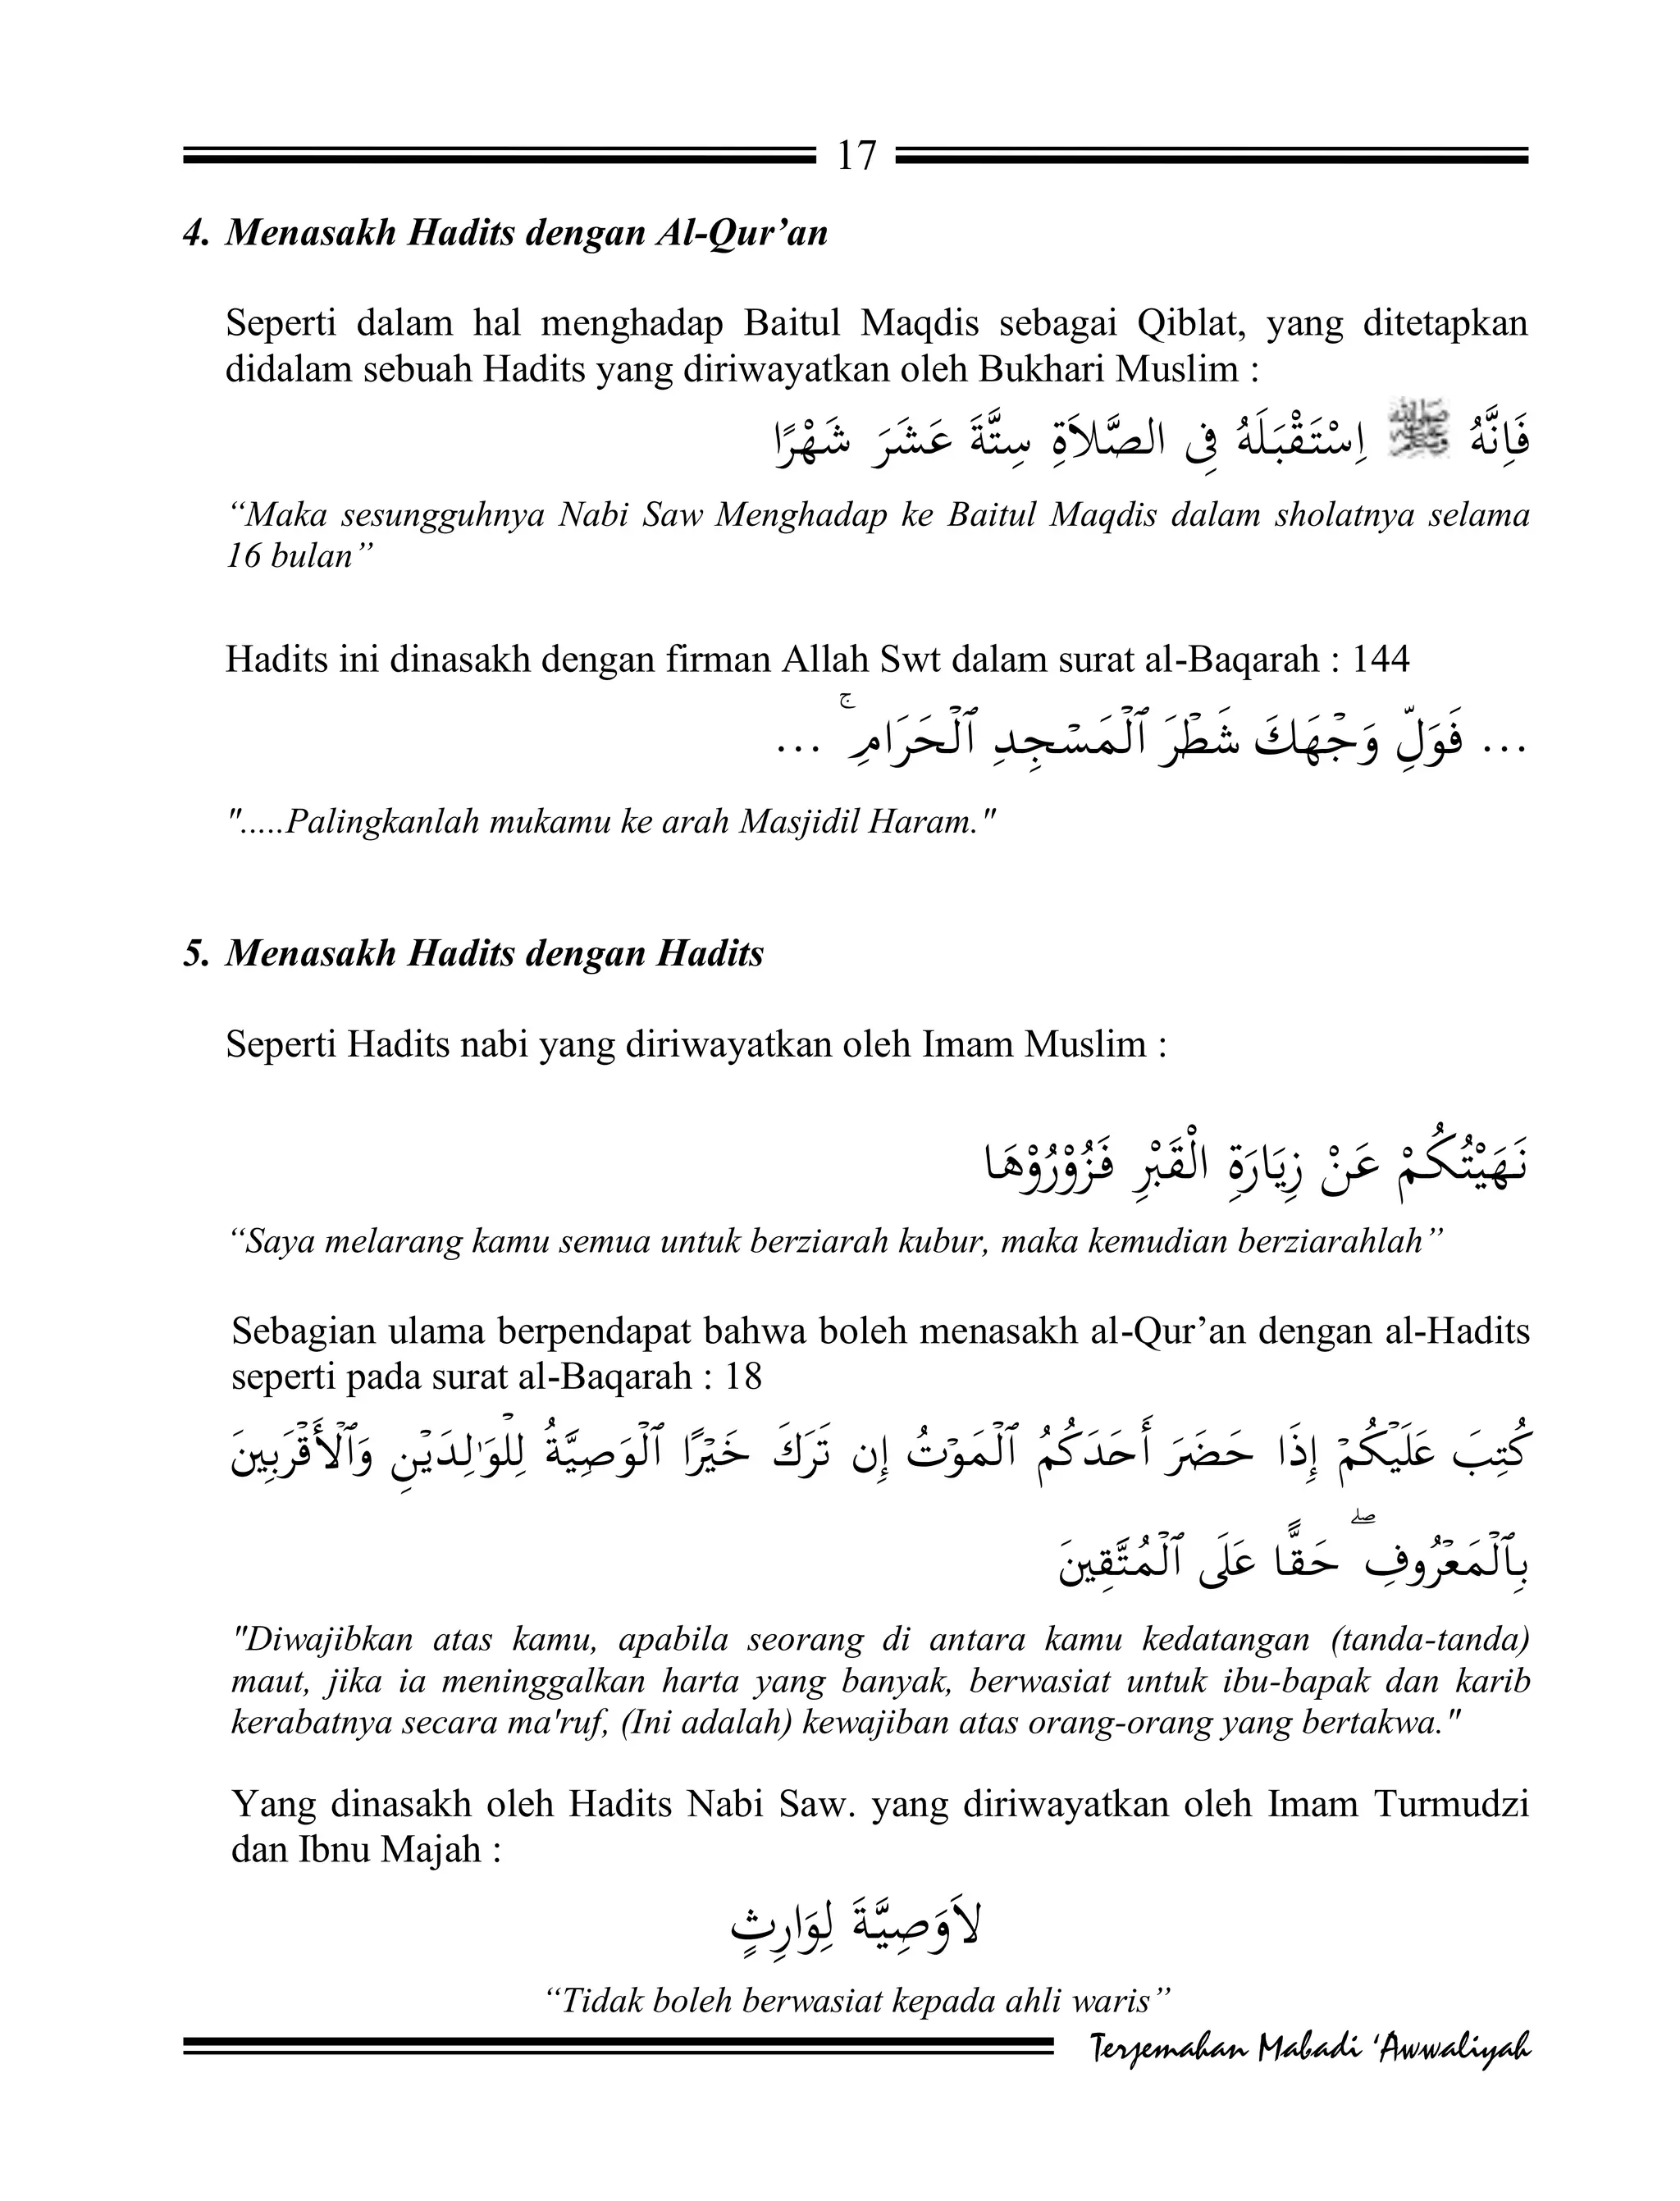 17
4. Menasakh Hadits dengan Al-Qur’an
Seperti dalam hal menghadap Baitul Maqdis sebagai Qiblat, yang ditetapkan
didalam sebuah Hadits yang diriwayatkan oleh Bukhari Muslim :
فَاِنَّهُ ﷺ اِسْتَقْبَلَهُ فِى الصَّلاَةِ سِتَّةَ عَشَرَ شَهْرًا
“Maka sesungguhnya Nabi Saw Menghadap ke Baitul Maqdis dalam sholatnya selama
16 bulan”
Hadits ini dinasakh dengan firman Allah Swt dalam surat al-Baqarah : 144
... فَوَلِّ وَجْهَكَ شَطْرَ ٱلْمَسْجِدِ ٱلْحَرَامِ ۚ ...
".....Palingkanlah mukamu ke arah Masjidil Haram."
5. Menasakh Hadits dengan Hadits
Seperti Hadits nabi yang diriwayatkan oleh Imam Muslim :
نَهَيْتُكُمْ عَنْ زِيَارَةِ الْقَبْرِ فَزُوْرُوْهَا
“Saya melarang kamu semua untuk berziarah kubur, maka kemudian berziarahlah”
Sebagian ulama berpendapat bahwa boleh menasakh al-Qur’an dengan al-Hadits
seperti pada surat al-Baqarah : 18
كُتِبَ عَلَيْكُمْ إِذَا حَضَرَ أَحَدَكُمُ ٱلْمَوْتُ إِن تَرَكَ خَيْرًا ٱلْوَصِيَّةُ لِلْوَٰلِدَيْنِ وَٱلْأَقْرَبِينَ
بِٱلْمَعْرُوفِ ۖ حَقًّا عَلَى ٱلْمُتَّقِينَ
"Diwajibkan atas kamu, apabila seorang di antara kamu kedatangan (tanda-tanda)
maut, jika ia meninggalkan harta yang banyak, berwasiat untuk ibu-bapak dan karib
kerabatnya secara ma'ruf, (Ini adalah) kewajiban atas orang-orang yang bertakwa."
Yang dinasakh oleh Hadits Nabi Saw. yang diriwayatkan oleh Imam Turmudzi
dan Ibnu Majah :
لاَوَصِيَّةَ لِوَارِثٍ
“Tidak boleh berwasiat kepada ahli waris”
Terjemahan Mabadi ‘Awwaliyah